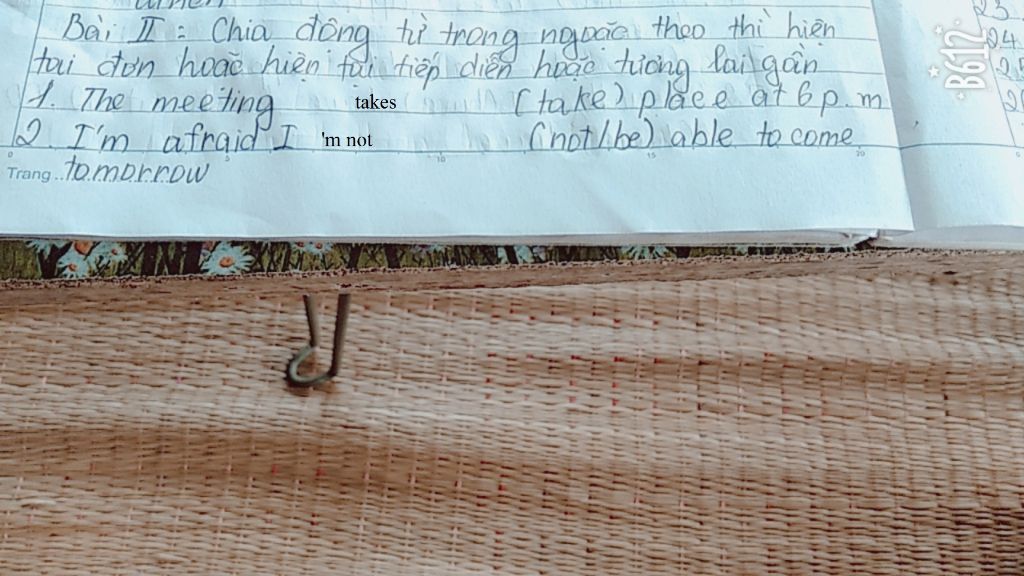 Bài II : Chia động từ trong ngoặc theo thì hiện
tại đơn hoặc hiện tại tiếp diễn hoặc tương lai gần
1. The meeting takes (take) place at 6 p.m
2. I'm afraid I 'm not (not/be) able to come
Trang .. tomorrow
B612
23.
24